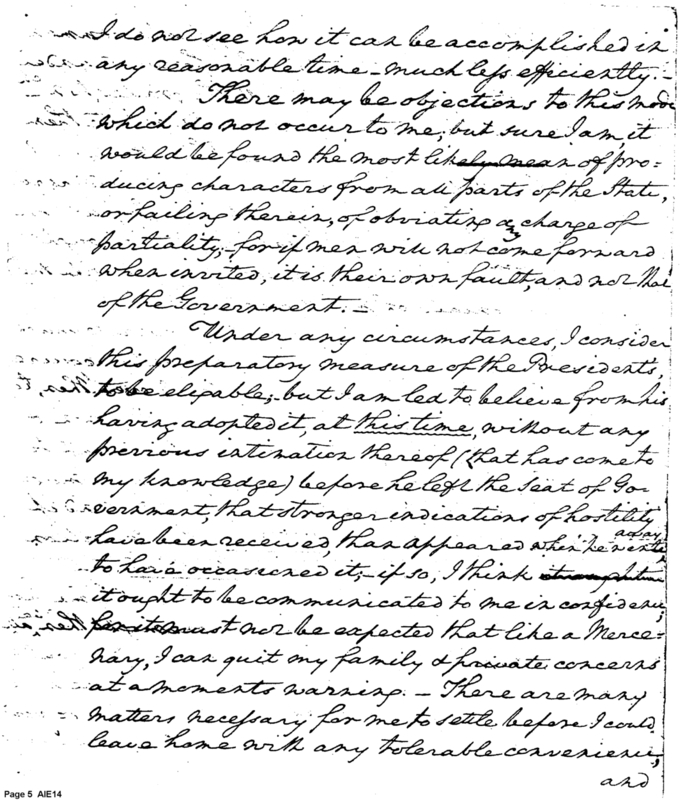 I do not see how it can be accomplished in
any reasonable time – much less efficiently. –
There may be objections to this mode
which do not occur to me; but sure I am, it
would be found the most likely mean of pro=
ducing characters from all parts of the State,
or failing therein, of obviating any charge of
partiality; – for if men will not come forward
when invited, it is their own fault, and not that
of the Government. –
Under any circumstances, I consider
this preparatory measure of the Presidents,
to be eligable; – but I am led to believe from his
having adopted it, at this time, without any
previous intimation thereof (that has come to
my knowledge) before he left the Seat of Go:
vernment, that stronger indications of hostility
have been received, than appeared when he went away
to have occasioned it; – if so, I think
it ought to be communicated to me in confidence;
for it must not be expected that like a Merce=
nary, I can quit my family & private concerns
at a moments warning. – There are many
matters necessary for me to settle before I could
leave home with any tolerable convenience;
and
Page 5 AIE14